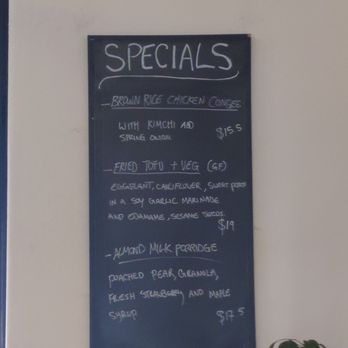 SPECIALS
- BROWN RICE CHICKEN CONGEE
WITH KIMCHI AND
SPRING ONION $15.5
- FRIED TOFU + VEG (GF)
EGGPLANT, CAULIFLOWER, SWEET POTATO
IN A SOY GARLIC MARINADE
AND EDAMAME, SESAME SEEDS
$19
- ALMOND MILK PORRIDGE
POACHED PEAR, GRANOLA,
FRESH STRAWBERRY AND MAPLE
SYRUP $17.5